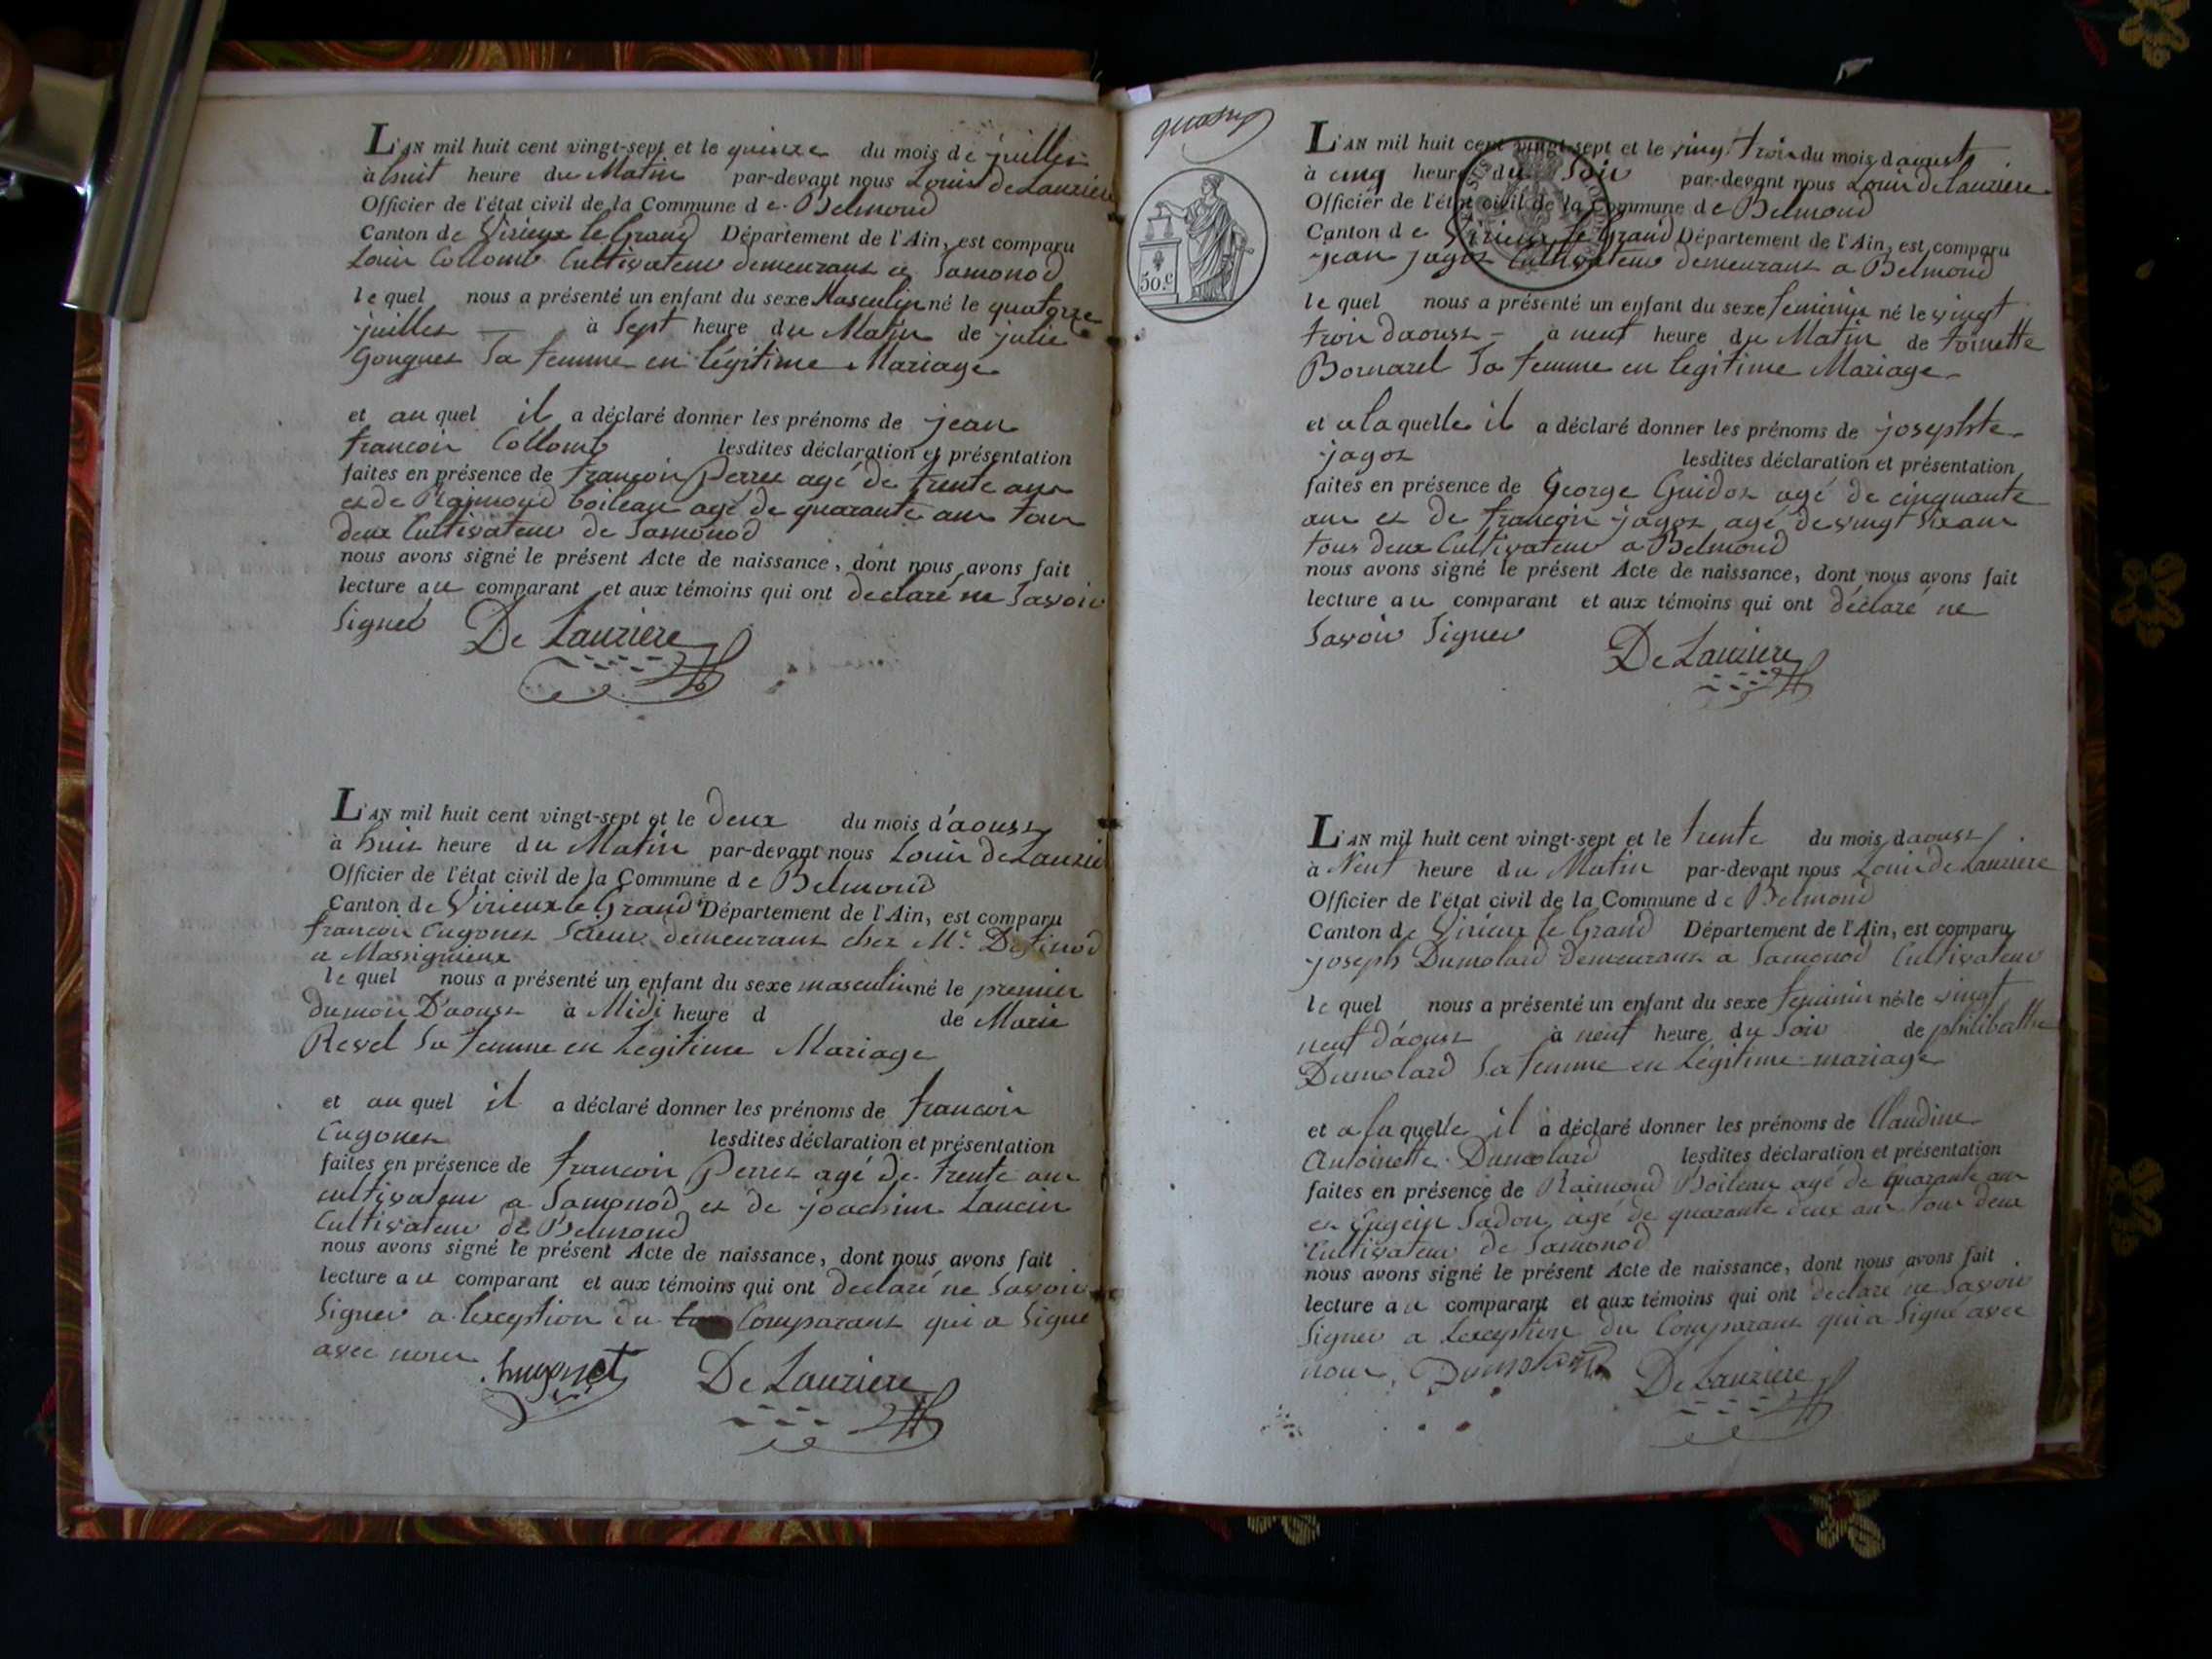 L'AN mil huit cent vingt-sept et le quinze du mois de juillet
à huit heure du Matin par-devant nous Louis de Lauziere
Officier de l'état civil de la Commune de Belmond
Canton de Virieux le Grand Département de l'Ain, est comparu
Louis Collomb Cultivateur demeurant a Samonod
lequel nous a présenté un enfant du sexe Masculin né le quatorze
juillet à Sept heure du Matin de julie
Gonguet Sa femme en légitime Mariage
et auquel il a déclaré donner les prénoms de jean
francois Collomb lesdites déclaration et présentation
faites en présence de francois Perret agé de trente ans
et de Raimond boileau agé de quarante ans tous
deux Cultivateur de Samonod
nous avons signé le présent Acte de naissance, dont nous avons fait
lecture au comparant et aux témoins qui ont declaré ne Savoir
Signer De Lauziere
L'AN mil huit cent vingt-sept et le deux du mois d'aoust
à huit heure du Matin par-devant nous Louis de Lauzier
Officier de l'état civil de la Commune de Belmond
Canton de Virieux le Grand Département de l'Ain, est comparu
francois Cugonet Scieur demeurant chez Mr. Destinod
a Massignieux
lequel nous a présenté un enfant du sexe masculin né le premier
du mois D'aoust à Midi heure d de Marie
Revel Sa femme en Légitime Mariage
et auquel il a déclaré donner les prénoms de francois
Cugonet lesdites déclaration et présentation
faites en présence de francois Perret agé de trente ans
cultivateur a Samonod et de joachim Lancin
Cultivateur de Belmond
nous avons signé le présent Acte de naissance, dont nous avons fait
lecture au comparant et aux témoins qui ont declaré ne Savoir
Signer a lexception du Comparant qui a Signé
avec nous hugonet De Lauziere
50.c
L'AN mil huit cent vingt-sept et le ving trois du mois d'aoust
à cinq heure du Soir par-devant nous Louis de lauziere
Officier de l'état civil de la Commune de Belmond
Canton de Virieux le Grand Département de l'Ain, est comparu
jean jagot Cultivateur demeurant a Belmond
lequel nous a présenté un enfant du sexe feminin né le vingt
trois daoust à neuf heure du Matin de toinette
Bornarel Sa femme en legitime Mariage
et a laquelle il a déclaré donner les prénoms de josephte
jagot lesdites déclaration et présentation
faites en présence de George Guidot agé de cinquante
ans et de francois jagot agé de vingt Six ans
tous deux Cultivateur a Belmond
nous avons signé le présent Acte de naissance, dont nous avons fait
lecture au comparant et aux témoins qui ont déclaré ne
Savoir Signer De Lauziere
L'AN mil huit cent vingt-sept et le trente du mois daoust
à Neuf heure du Matin par-devant nous Louis de Lauziere
Officier de l'état civil de la Commune de Belmond
Canton de Virieux le Grand Département de l'Ain, est comparu
joseph Dumolard demeurant a Samonod Cultivateur
lequel nous a présenté un enfant du sexe feminin né le vingt
neuf d'aoust à neuf heure du Soir de philiberthe
Dumolard Sa femme en Légitime mariage
et a laquelle il a déclaré donner les prénoms de Claudine
Antoinette Dumolard lesdites déclaration et présentation
faites en présence de Raimond Boileau agé de quarante ans
et Eugein Sadou agé de quarante deux ans tous deux
Cultivateur de Samonod
nous avons signé le présent Acte de naissance, dont nous avons fait
lecture au comparant et aux témoins qui ont declaré ne Savoir
Signer a Lexception du Comparant qui a Signé avec
nous, Dumolard De Lauziere